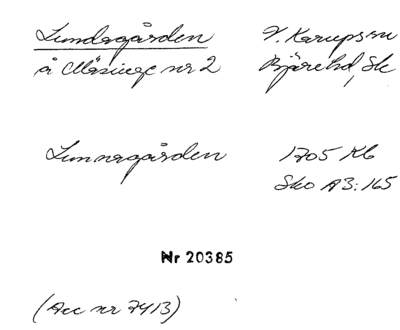 Lundagården
V. Karups sn
å Mäsinge nr 2
Bjäre hd, Sk
Lunnagården
1705 Kb
Sko A3:165
Nr 20385
(Acc nr 7413)